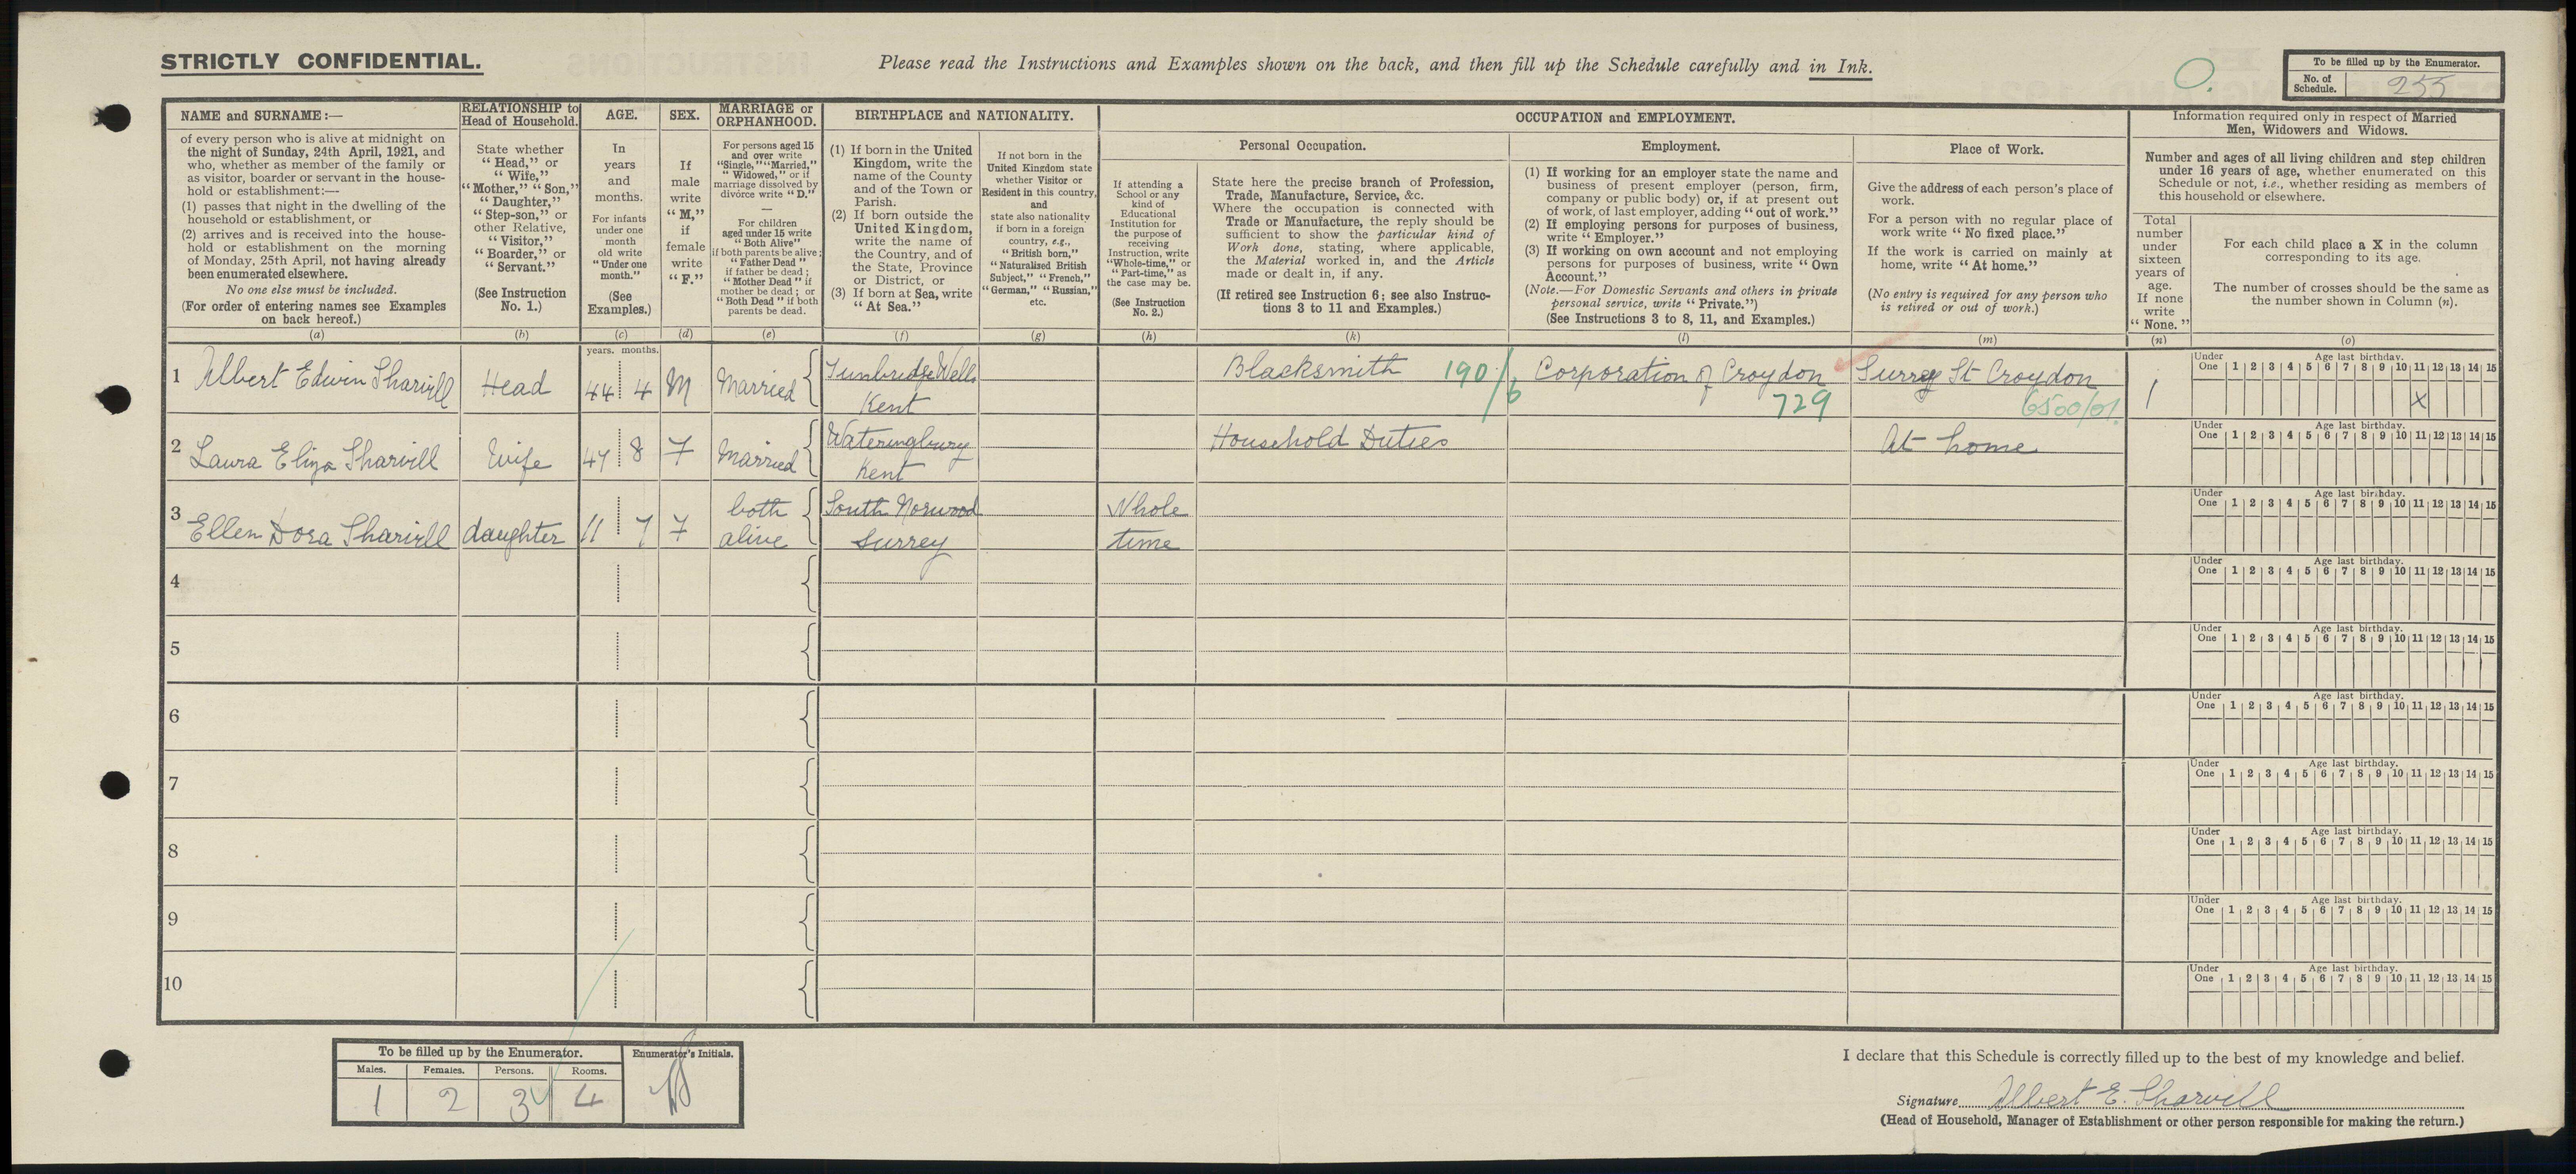 STRICTLY CONFIDENTIAL.
Please read the Instructions and Examples shown on the back, and then fill up the Schedule carefully and in Ink.
O.
To be filled up by the Enumerator.
No. of Schedule. 255
NAME and SURNAME:—
of every person who is alive at midnight on
the night of Sunday, 24th April, 1921, and
who, whether as member of the family or
as visitor, boarder or servant in the house-
hold or establishment:—
(1) passes that night in the dwelling of the
household or establishment, or
(2) arrives and is received into the house-
hold or establishment on the morning
of Monday, 25th April, not having already
been enumerated elsewhere.
No one else must be included.
(For order of entering names see Examples
on back hereof.)
(a)
RELATIONSHIP to
Head of Household.
State whether
"Head," or
"Wife,"
"Mother," "Son,"
"Daughter,"
"Step-son," or
other Relative,
"Visitor,"
"Boarder," or
"Servant."
(See Instruction
No. 1.)
(b)
AGE.
In
years
and
months.
For infants
under one
month
old write
"Under one
month."
(See
Examples.)
(c)
SEX.
If
male
write
"M,"
if
female
write
"F."
(d)
MARRIAGE or
ORPHANHOOD.
For persons aged 15
and over write
"Single," "Married,"
"Widowed," or if
marriage dissolved by
divorce write "D."
—
For children
aged under 15 write
"Both Alive"
if both parents be alive;
"Father Dead"
if father be dead;
"Mother Dead" if
mother be dead; or
"Both Dead" if both
parents be dead.
(e)
BIRTHPLACE and NATIONALITY.
(1) If born in the United
Kingdom, write the
name of the County
and of the Town or
Parish.
(2) If born outside the
United Kingdom,
write the name of
the Country, and of
the State, Province
or District, or
(3) If born at Sea, write
"At Sea."
(f)
If not born in the
United Kingdom state
whether Visitor or
Resident in this country,
and
state also nationality
if born in a foreign
country, e.g.,
"British born,"
"Naturalised British
Subject," "French,"
"German," "Russian,"
etc.
(g)
OCCUPATION and EMPLOYMENT.
If attending a
School or any
kind of
Educational
Institution for
the purpose of
receiving
Instruction, write
"Whole-time," or
"Part-time," as
the case may be.
(See Instruction
No. 2.)
(h)
Personal Occupation.
State here the precise branch of Profession,
Trade, Manufacture, Service, &c.
Where the occupation is connected with
Trade or Manufacture, the reply should be
sufficient to show the particular kind of
Work done, stating, where applicable,
the Material worked in, and the Article
made or dealt in, if any.
(If retired see Instruction 6; see also Instruc-
tions 3 to 11 and Examples.)
(k)
Employment.
(1) If working for an employer state the name and
business of present employer (person, firm,
company or public body) or, if at present out
of work, of last employer, adding "out of work."
(2) If employing persons for purposes of business,
write "Employer."
(3) If working on own account and not employing
persons for purposes of business, write "Own
Account."
(Note.—For Domestic Servants and others in private
personal service, write "Private.")
(See Instructions 3 to 8, 11, and Examples.)
(l)
Place of Work.
Give the address of each person's place of
work.
For a person with no regular place of
work write "No fixed place."
If the work is carried on mainly at
home, write "At home."
(No entry is required for any person who
is retired or out of work.)
(m)
Information required only in respect of Married
Men, Widowers and Widows.
Number and ages of all living children and step children
under 16 years of age, whether enumerated on this
Schedule or not, i.e., whether residing as members of
this household or elsewhere.
Total
number
under
sixteen
years of
age.
If none
write
"None."
(n)
For each child place a X in the column
corresponding to its age.
The number of crosses should be the same as
the number shown in Column (n).
(o)
years. months.
1 Albert Edwin Sharvill Head 44 4 M Married Tunbridge Wells Kent Blacksmith 190/6 Corporation of Croydon 729 Surrey St Croydon 6500/01. 1
Under One 1 2 3 4 5 6 7 8 9 10 11 12 13 14 15
Age last birthday.
X
2 Laura Eliza Sharvill Wife 47 8 F Married Wateringbury Kent Household Duties At home
Under One 1 2 3 4 5 6 7 8 9 10 11 12 13 14 15
Age last birthday.
3 Ellen Dora Sharvill daughter 11 7 F both alive South Norwood Surrey Whole time
Under One 1 2 3 4 5 6 7 8 9 10 11 12 13 14 15
Age last birthday.
4
Under One 1 2 3 4 5 6 7 8 9 10 11 12 13 14 15
Age last birthday.
5
Under One 1 2 3 4 5 6 7 8 9 10 11 12 13 14 15
Age last birthday.
6
Under One 1 2 3 4 5 6 7 8 9 10 11 12 13 14 15
Age last birthday.
7
Under One 1 2 3 4 5 6 7 8 9 10 11 12 13 14 15
Age last birthday.
8
Under One 1 2 3 4 5 6 7 8 9 10 11 12 13 14 15
Age last birthday.
9
Under One 1 2 3 4 5 6 7 8 9 10 11 12 13 14 15
Age last birthday.
10
Under One 1 2 3 4 5 6 7 8 9 10 11 12 13 14 15
Age last birthday.
To be filled up by the Enumerator.
Males. Females. Persons. Rooms.
1 2 3 4
Enumerator's Initials.
I declare that this Schedule is correctly filled up to the best of my knowledge and belief.
Signature Albert E. Sharvill
(Head of Household, Manager of Establishment or other person responsible for making the return.)